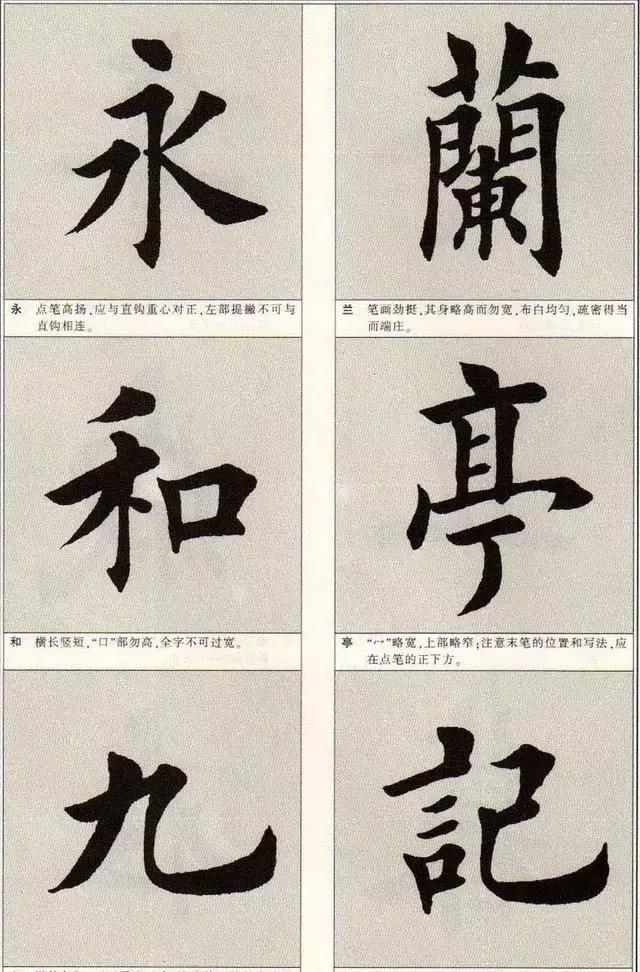 蘭
兰 笔画劲挺,其身略高而勿宽,布白均匀,疏密得当
而端庄。
亭
亭 “冖”略宽,上部略窄;注意末笔的位置和写法,应
在点笔的正下方。
記
永
永 点笔高扬,应与直钩重心对正,左部提撇不可与
直钩相连。
和
和 横长竖短,“口”部勿高,全字不可过宽。
九